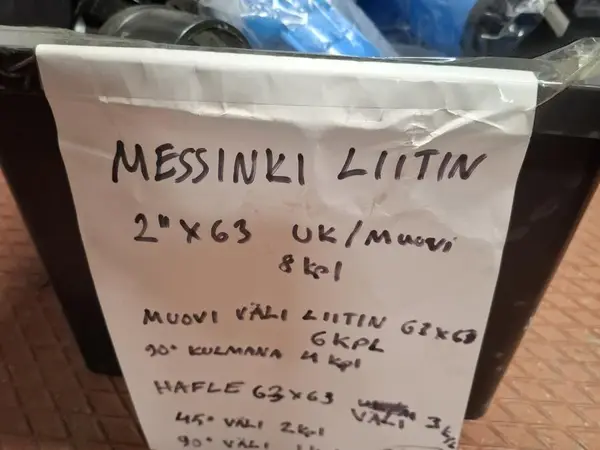 MESSINKI LIITIN
2" X 63 UK/MUOVI
8 kpl
MUOVI VÄLI LIITIN 63X63
6 KPL
90° KULMANA 4 kpl
HAFLE 63X63 VÄLI 3
45° VÄLI 2kpl
90° VÄLI